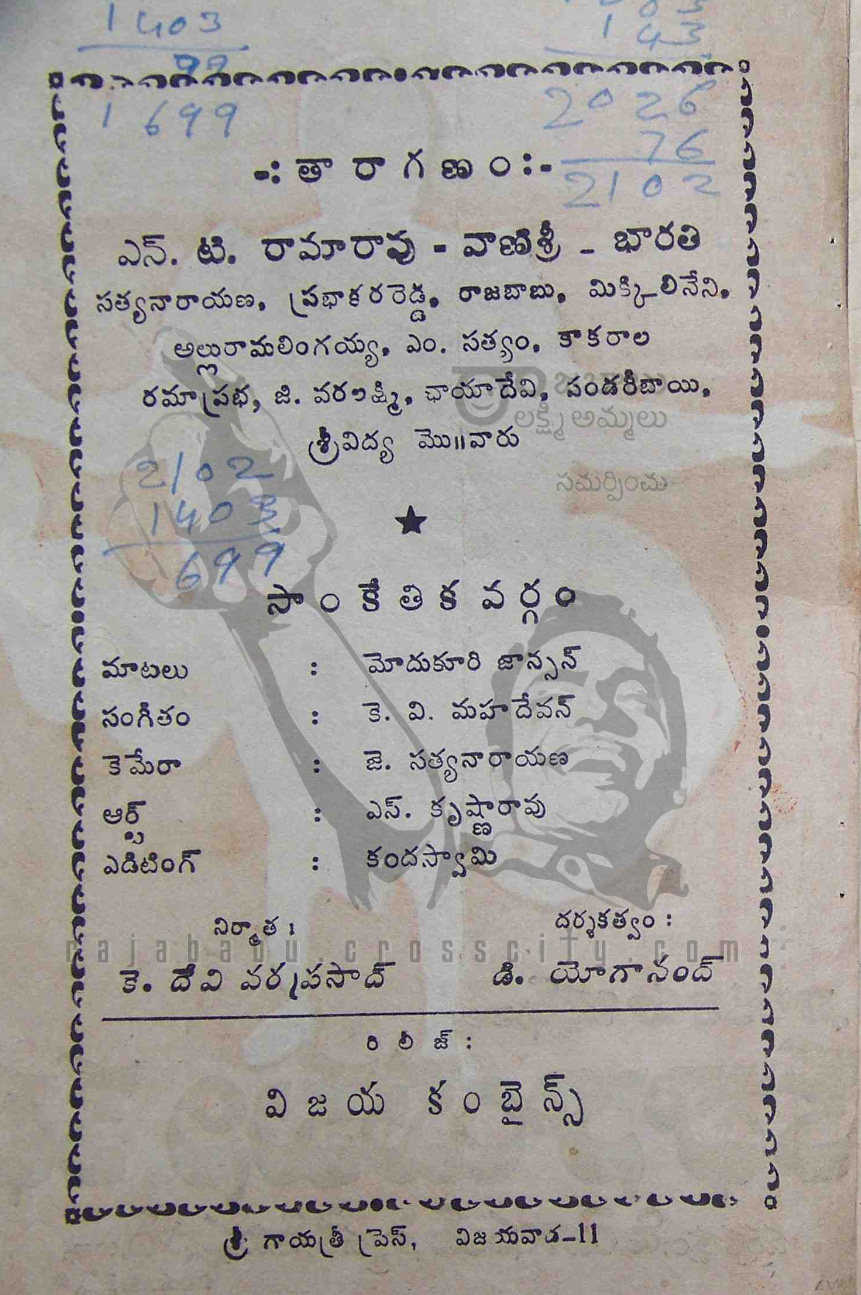 1403
143
99
1699
2026
76
2102
-: తారాగణం :-
ఎన్. టి. రామారావు - వాణిశ్రీ - భారతి
సత్యనారాయణ, ప్రభాకరరెడ్డి, రాజబాబు, మిక్కిలినేని,
అల్లురామలింగయ్య, ఎం. సత్యం, కాకరాల
రమాప్రభ, జి. వరలక్ష్మి, ఛాయాదేవి, పండరీబాయి,
లక్ష్మీ అమ్మలు
శ్రీవిద్య మొ॥వారు
2102
సమర్పించు
1403
699
సాంకేతిక వర్గం
మాటలు : మోదుకూరి జాన్సన్
సంగీతం : కె. వి. మహదేవన్
కెమేరా : జె. సత్యనారాయణ
ఆర్ట్స్ : ఎస్. కృష్ణారావు
ఎడిటింగ్ : కందస్వామి
నిర్మాత : దర్శకత్వం :
rajababu.crosscity.com
కె. దేవి వరప్రసాద్ డి. యోగానంద్
రిలీజ్ :
విజయ కంబైన్స్
శ్రీ గాయత్రీ ప్రెస్, విజయవాడ-11